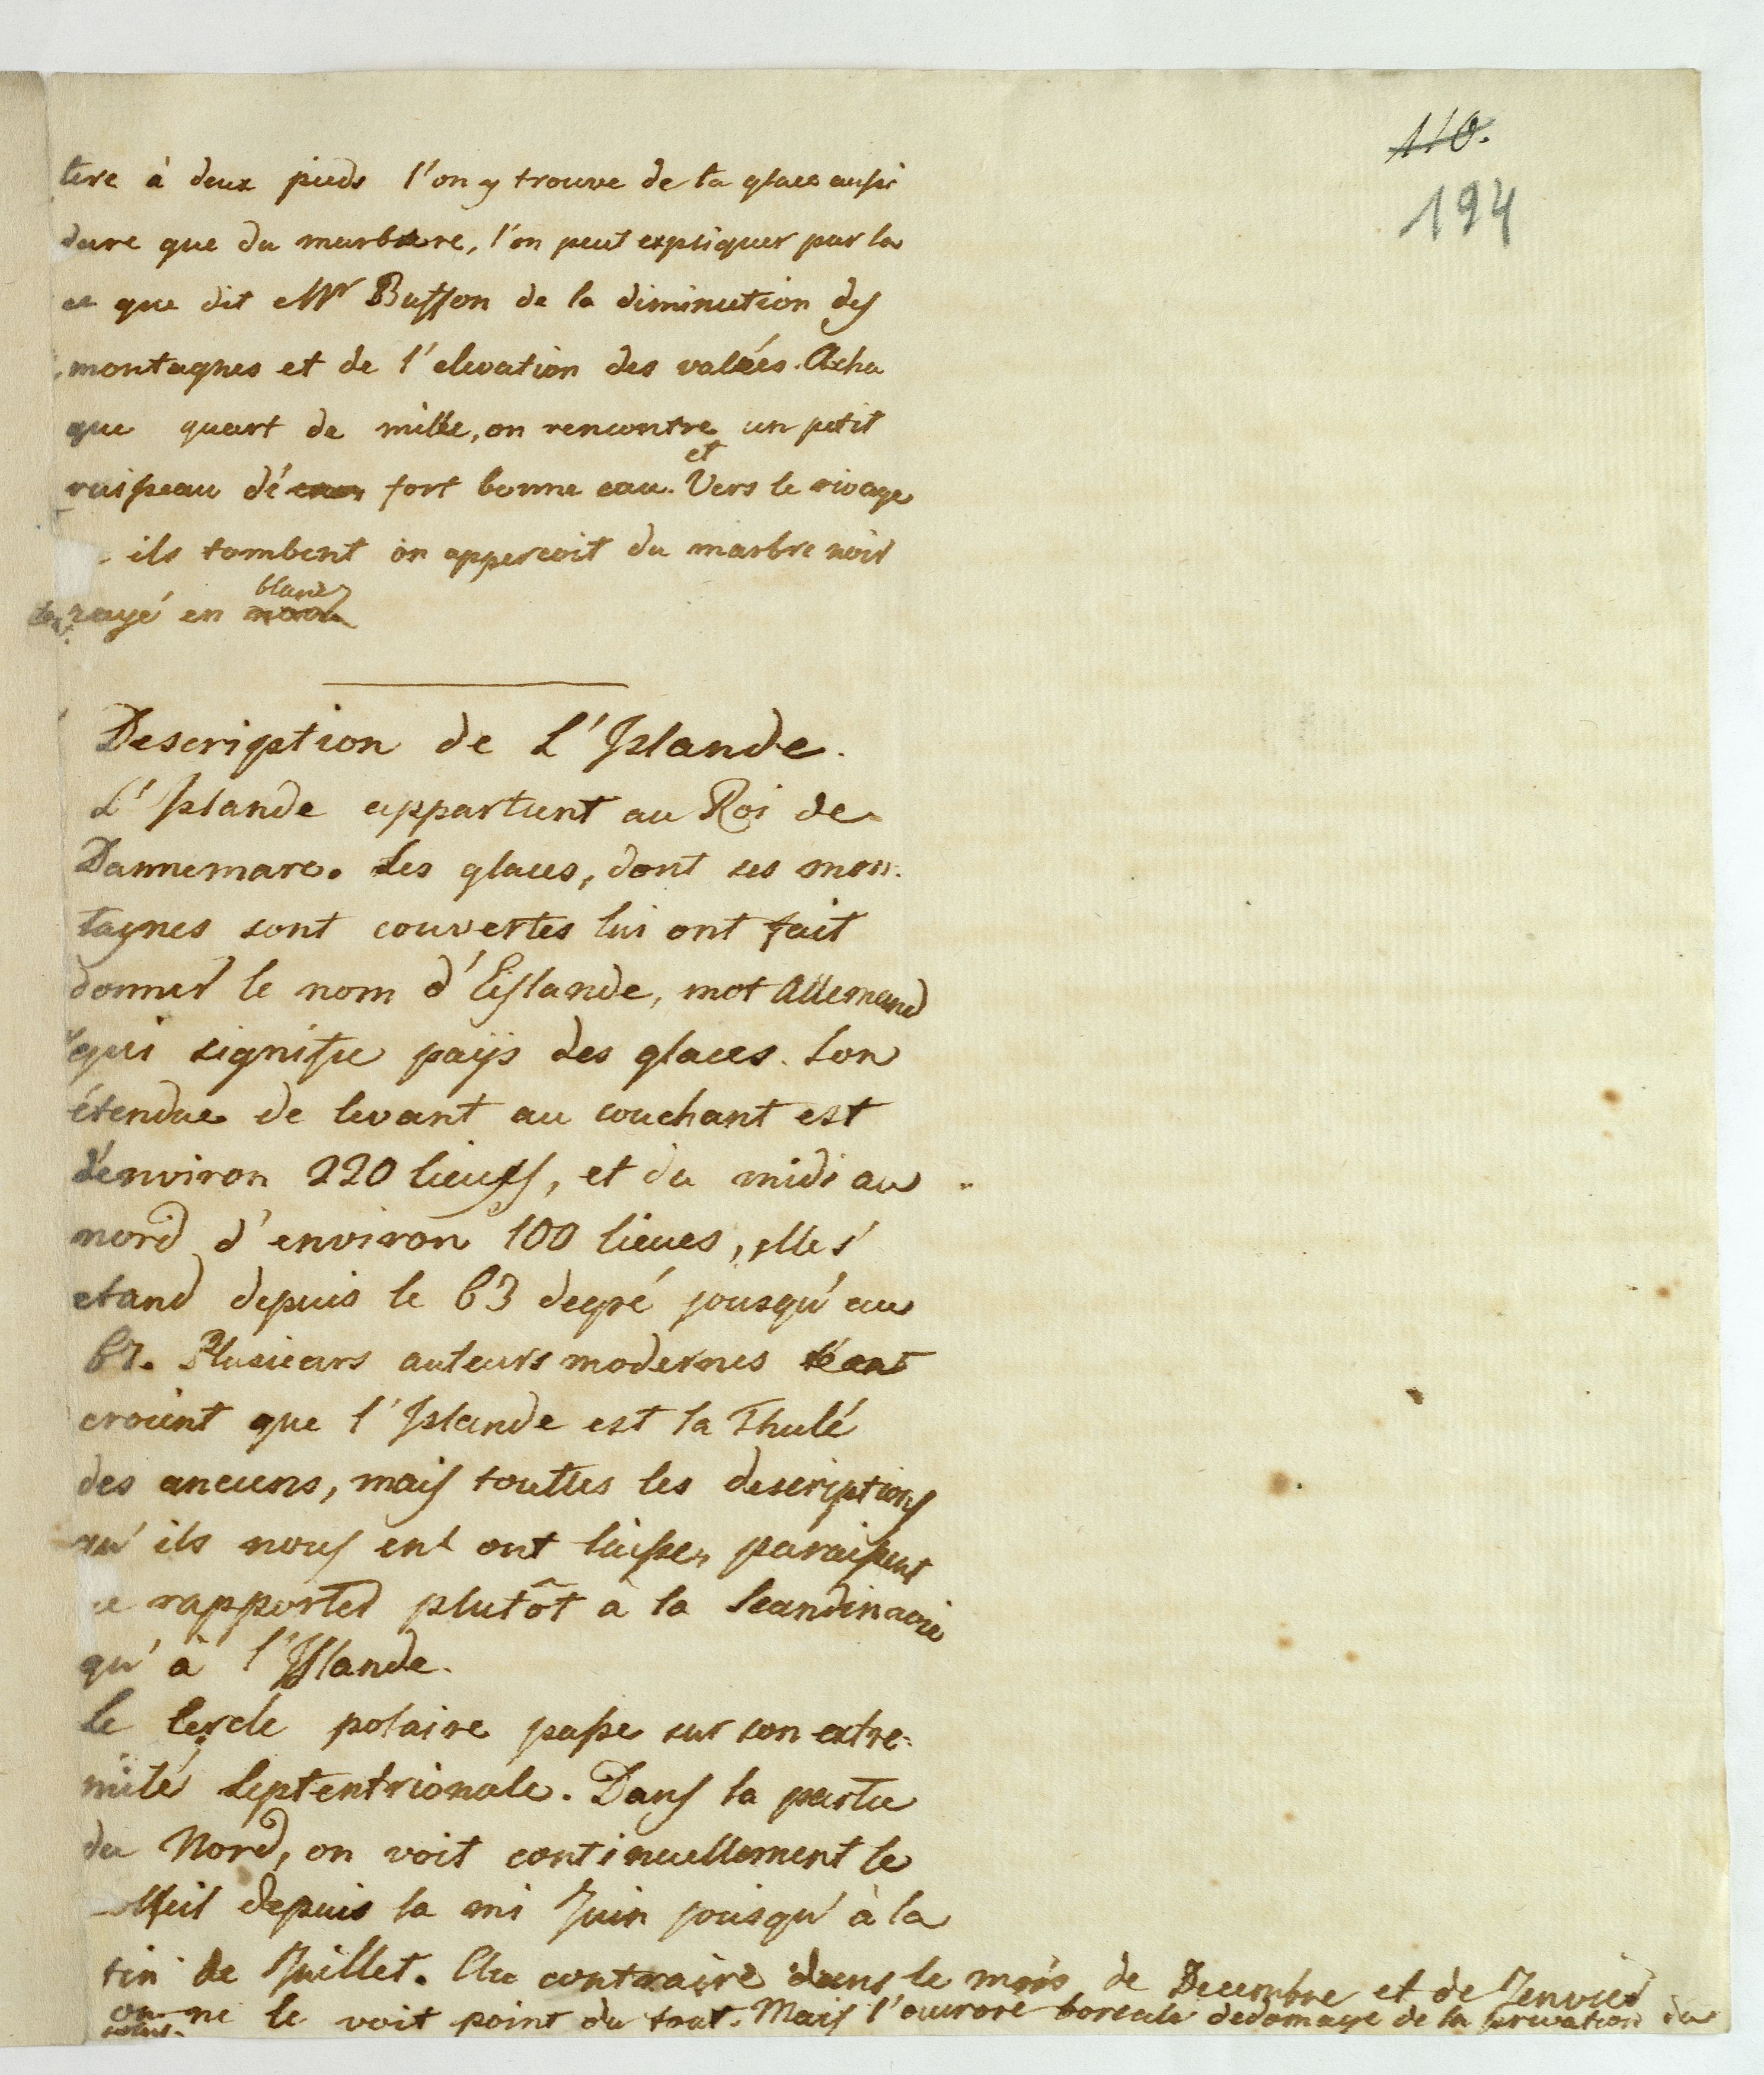 110.
194
tere à deux pieds l'on y trouve de la glace aussi
dure que du marbre, l'on peut expliquer par la
ce que dit Mr Buffon de la diminution des
montagnes et de l'elevation des valées. A cha
que quart de mille, on rencontre un petit
ruisseau de fort bonne eau. et Vers le rivage
ils tombent on apperçoit du marbre noir
rayé en blanc
Description de L'Islande.
L'Islande appartient au Roi de
Dannemarc. Les glaces, dont ses mon-
tagnes sont couvertes lui ont fait
donner le nom d'Eislande, mot Allemand
qui signifie païs des glaces. Son
étendue de levant au couchant est
d'environ 220 lieues, et du midi au
nord d'environ 100 lieues, elle s'
etand depuis le 63 degré jousqu'au
67. Plusieurs auteurs modernes
croient que l'Islande est la Thulé
des anciens, mais touttes les descriptions
qu'ils nous en ont laissés paraissent
se rapporter plutôt à la Scandinavie
qu'à l'Islande.
Le Cercle polaire passe sur son extre=
mité Septentrionale. Dans la partie
du Nord, on voit continuellement le
soleil depuis la mi Juin jousqu'à la
fin de Juillet. Au contraire dans le mois de Decembre et de Jenvier
on ne le voit point du tout. Mais l'aurore boreale dedomage de la privation du